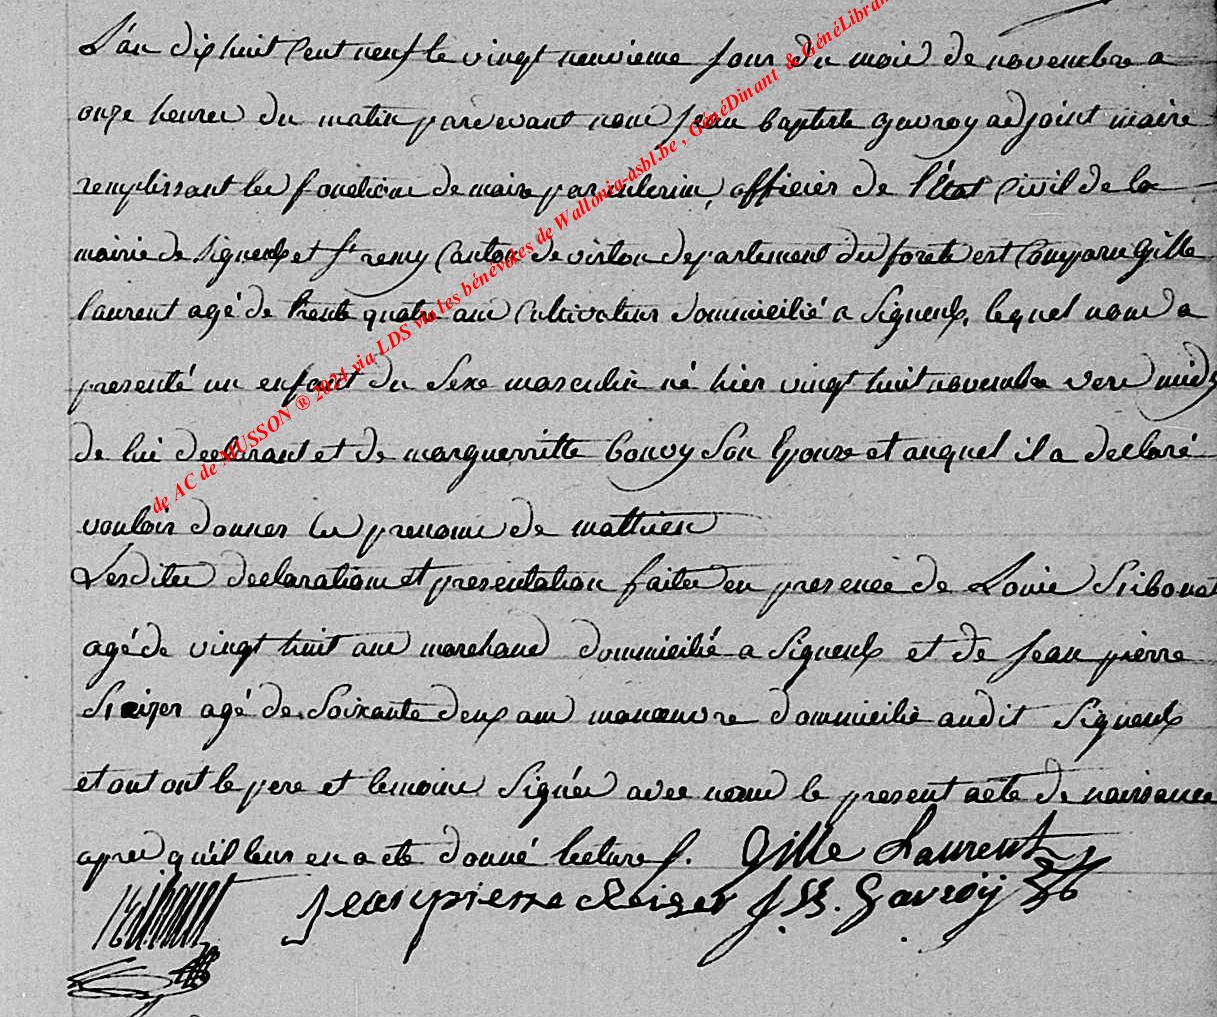 L'an dix huit cent neuf le vingt neuvieme jour du mois de novembre a
onze heures du matin pardevant nous Jean baptiste gavroy adjoint maire
remplissant les fonctions de maire par interim, officier de l'État Civil de la
mairie de Signeulx et St remy Canton de virton departement des forets est Comparu Gille
laurent agé de trente quatre ans Cultivateur domicilié a Signeulx, lequel nous a
presenté un enfant du Sexe masculin né hier vingt huit novembre vers midy
de lui declarant et de marguerritte Bonvy Son Epouse et auquel il a declaré
vouloir donner les prenoms de mathieu
Lesdites declarations et presentation faites en presence de Louis
agé de vingt huit ans marchand domicilié a Signeulx et de Jean pierre
agé de Soixante deux ans manoeuvre domicilié audit Signeulx
et ont ont le pere et temoins Signés avec nous le present acte de naissance
apres qu'il leur en a eté donné lecture f. Gille Laurent
Jean pierre J. B. Gavroÿ
de AC de MUSSON ® 2024 via LDS via les bénévoles de Wallonia-asbl.be , GénéDinant & GénéLibran